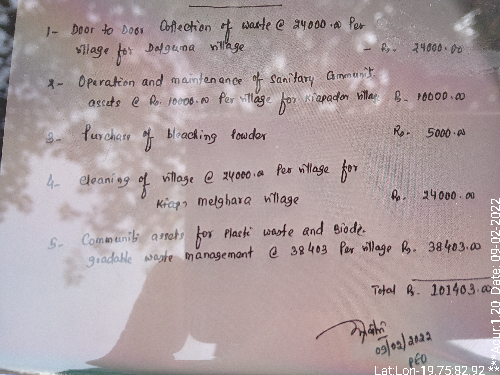 1- Door to Door Collection of waste @ 24000.00 Per
village for Dalguma village - Rs. 24000.00
2- Operation and maintenance of Sanitary Communiti
assets @ Rs. 10000.00 Per village for Kiapadar village Rs. 10000.00
3- Purchase of bleaching Powder Rs. 5000.00
4- Cleaning of village @ 24000.00 Per village for
Kiapa melghara village Rs. 24000.00
5- Communiti assets for Plasti waste and Biode-
gradable waste management @ 38403 Per village Rs. 38403.00
Total Rs. 101403.00
09/02/2022
PEO
Lat Lon-19.7582.92 ***Agur1 20 Date, 09-02-2022